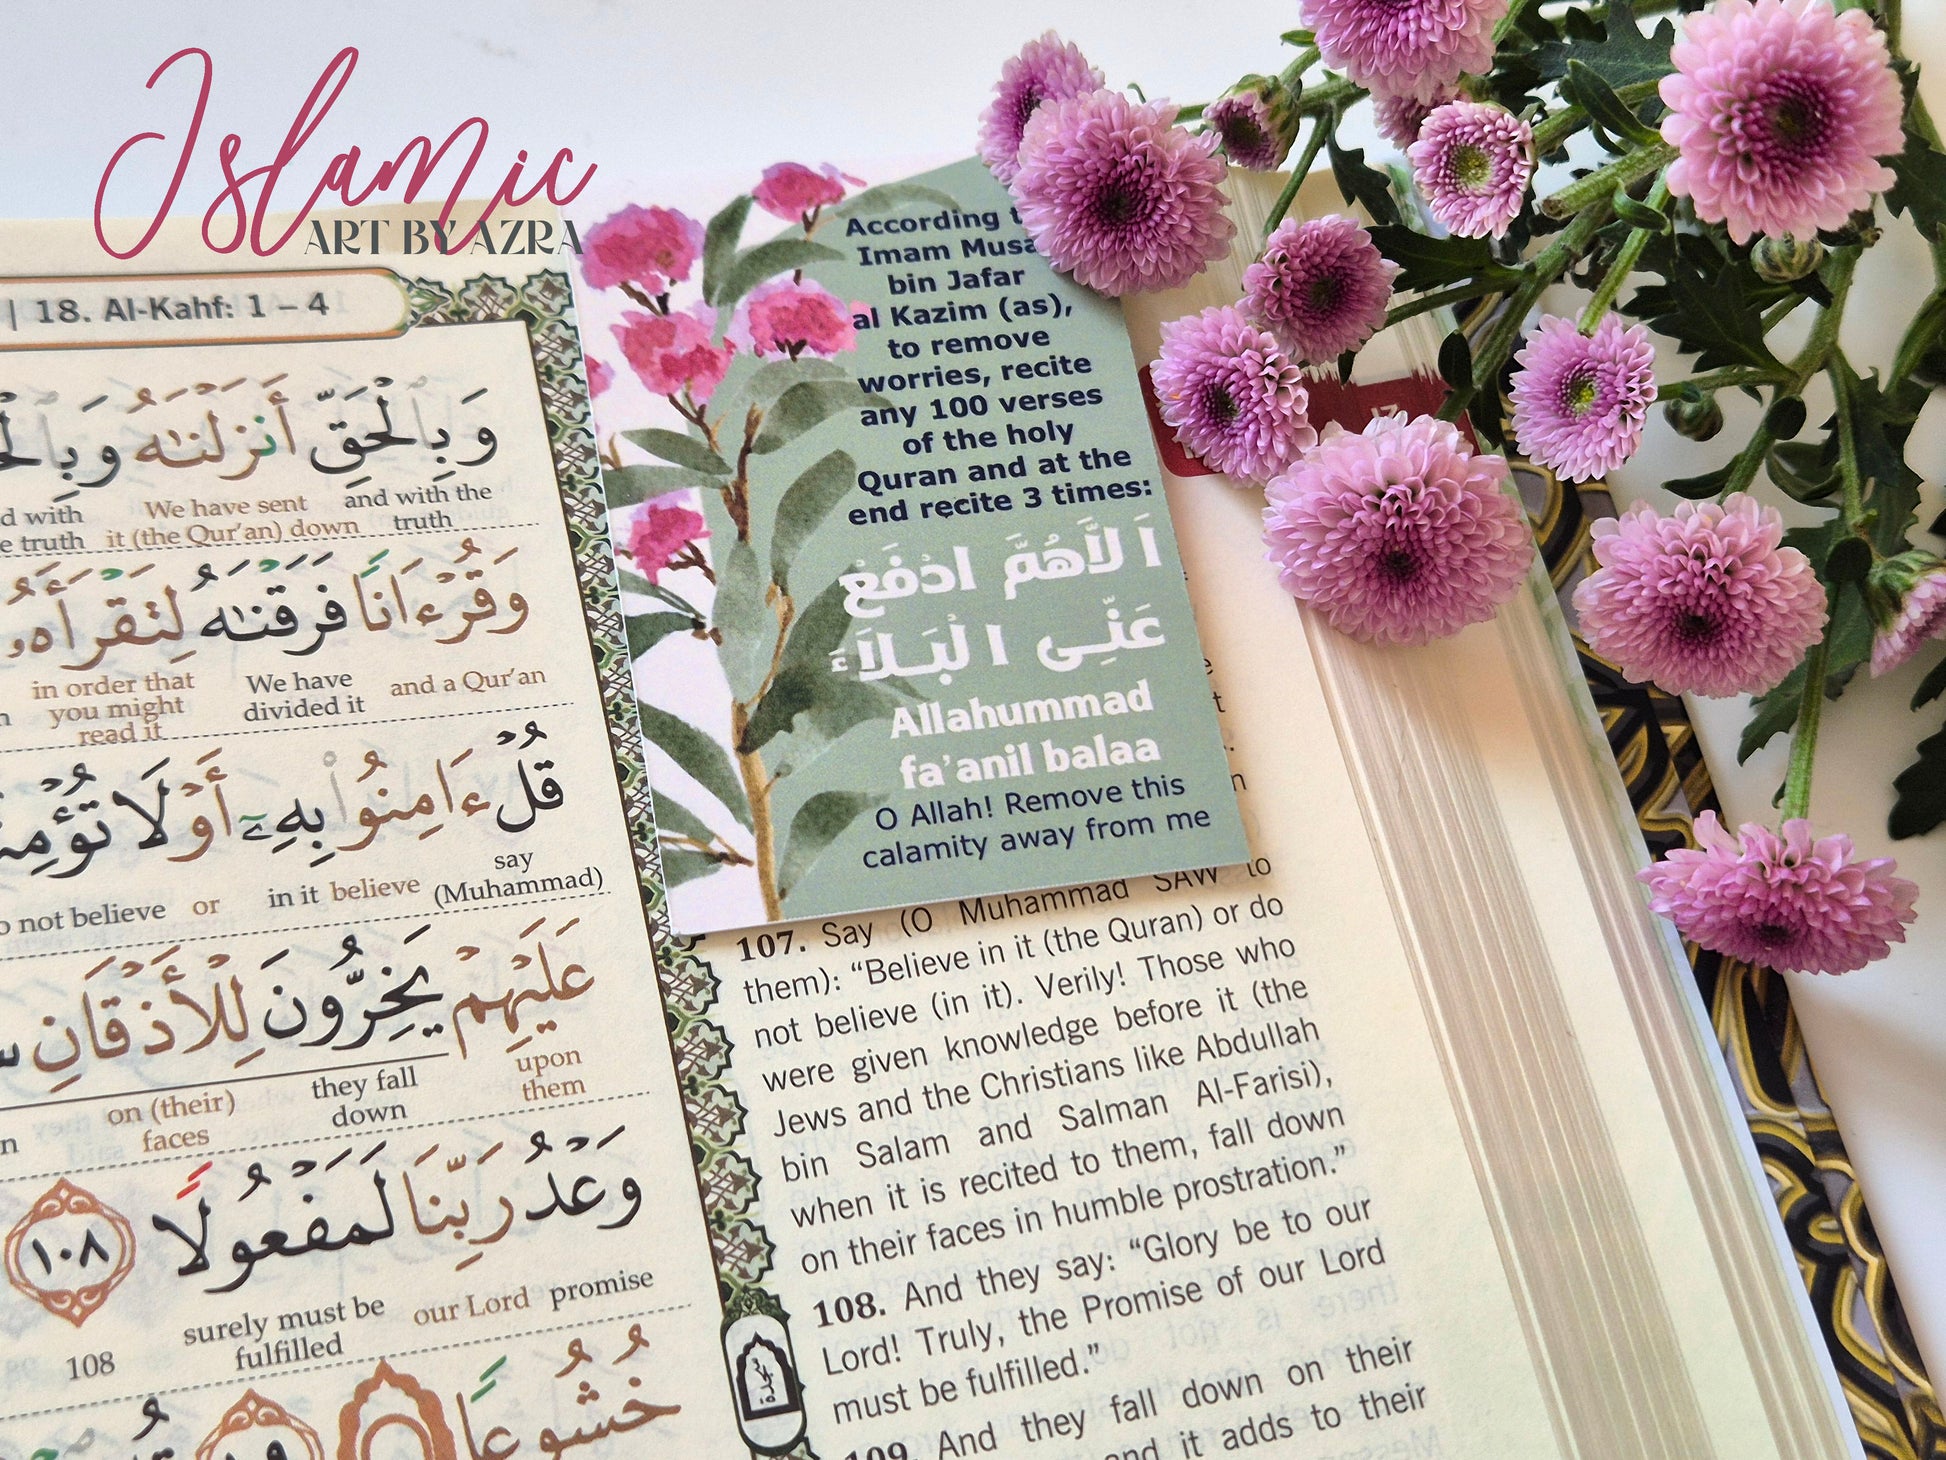 Islamic
ART BY AZRA
| 18. Al-Kahf: 1 – 4
وَبِالْحَقِّ أَنزَلْنَـٰهُ وَبِالْحَ
and with the truth
We have sent it (the Qur'an) down
d with
e truth
وَقُرْءَانًا فَرَقْنَـٰهُ لِتَقْرَأَهُۥ
and a Qur'an
We have divided it
in order that you might read it
قُلْ ءَامِنُوا۟ بِهِۦٓ أَوْ لَا
say (Muhammad)
believe
in it
or
o not believe
عَلَيْهِمْ يَخِرُّونَ لِلْأَذْقَانِ
upon them
they fall down
on (their) faces
وَعْدُ رَبِّنَا لَمَفْعُولًا ١٠٨
promise
our Lord
surely must be fulfilled
108
خُشُوعًا
According
Imam Musa
bin Jafar
al Kazim (as),
to remove
worries, recite
any 100 verses
of the holy
Quran and at the
end recite 3 times:
اَلَّلهُمَّ ادْفَعْ
عَنِّى الْبَلاَءَ
Allahummad
fa'anil balaa
O Allah! Remove this
calamity away from me
17
107. Say (O Muhammad SAW to
them): “Believe in it (the Quran) or do
not believe (in it). Verily! Those who
were given knowledge before it (the
Jews and the Christians like Abdullah
bin Salam and Salman Al-Farisi),
when it is recited to them, fall down
on their faces in humble prostration.”
108. And they say: “Glory be to our
Lord! Truly, the Promise of our Lord
must be fulfilled.”
109. And they fall down on their
and it adds to their
سجدة